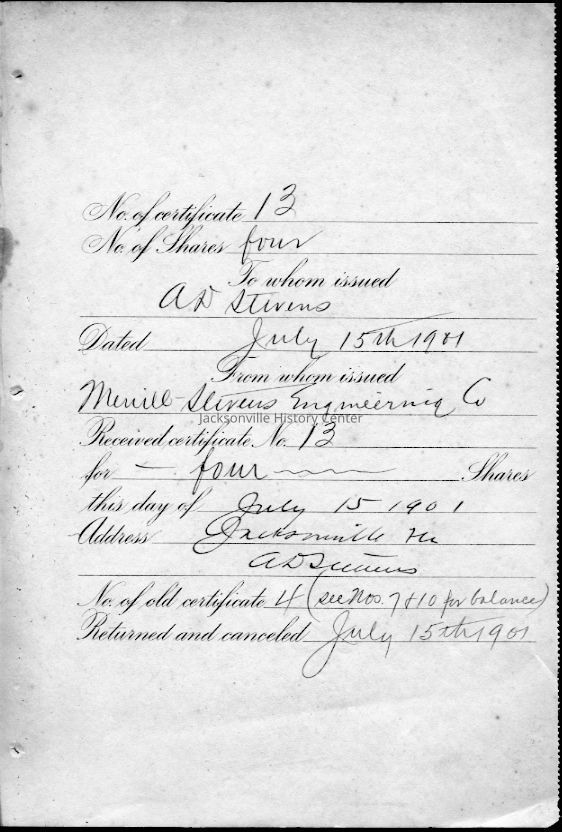 No. of certificate 13
No. of Shares four
To whom issued
A D Stevens
Dated July 15th 1901
From whom issued
Merrill-Stevens Engineering Co
Jacksonville History Center
Received certificate No. 13
for — four Shares
this day of July 15 1901
Address Jacksonville Fla
A D Stevens
No. of old certificate 4 (see Nos. 7 & 10 for balance)
Returned and canceled July 15th 1901